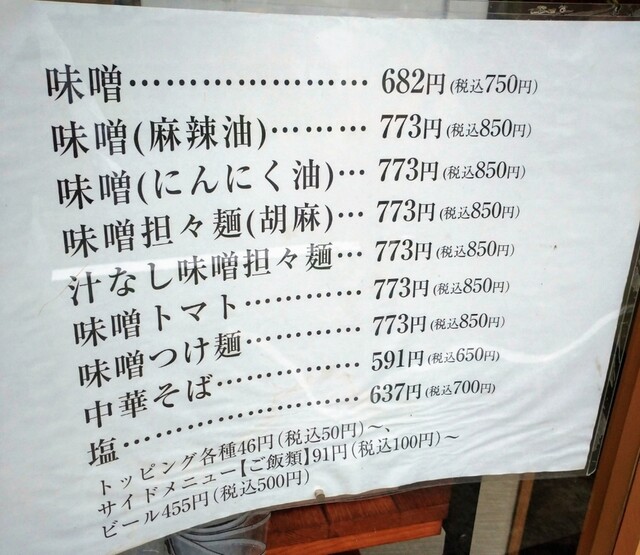 味噌…………………… 682円(税込750円)
味噌(麻辣油)……… 773円(税込850円)
味噌(にんにく油)… 773円(税込850円)
味噌担々麺(胡麻)… 773円(税込850円)
汁なし味噌担々麺… 773円(税込850円)
味噌トマト………… 773円(税込850円)
味噌つけ麺………… 773円(税込850円)
中華そば…………… 591円(税込650円)
塩…………………… 637円(税込700円)
トッピング各種46円(税込50円)〜、
サイドメニュー【ご飯類】91円(税込100円)〜
ビール455円(税込500円)